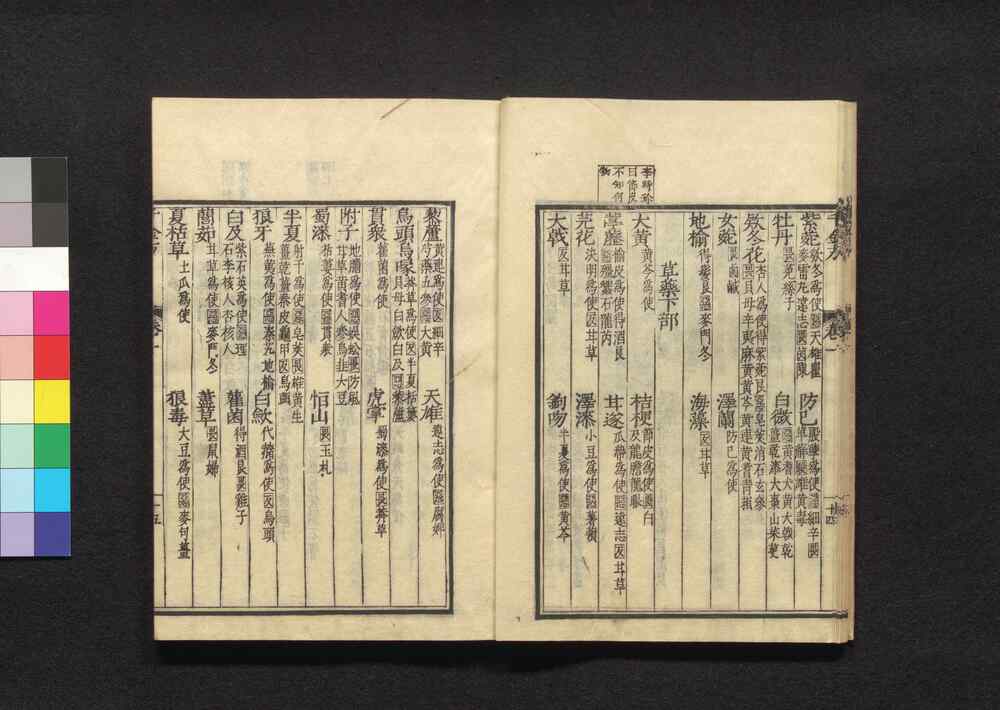 李時珍
曰節皮
不知何
千金方 卷一 十四
紫菀 款冬為使惡天雄瞿麥雷丸遠志畏茵陳 防己 殷孽為使惡細辛畏萆薢殺雄黃毒
牡丹 畏菟絲子 白薇 惡黃耆大黃大戟乾薑乾漆大棗山茱萸
款冬花 杏人為使得紫菀良惡皂莢消石玄參畏貝母辛夷麻黃黃芩黃連黃耆青葙
女菀 畏鹵鹹 澤蘭 防己為使
地榆 得髮良惡麥門冬 海藻 反甘草
草藥下部
大黃 黃芩為使 桔梗 節皮為使畏白及龍膽龍眼
葶藶 榆皮為使得酒良惡殭蠶石龍芮 甘遂 瓜蒂為使惡遠志反甘草
芫花 決明為使反甘草 澤漆 小豆為使惡薯蕷
大戟 反甘草 鉤吻 半夏為使惡黃芩
藜蘆 黃連為使反細辛芍藥五參惡大黃 天雄 遠志為使惡腐婢
烏頭烏喙 莽草為使反半夏栝蔞貝母白斂白及惡藜蘆
貫衆 雚菌為使 虎掌 蜀漆為使畏莽草
附子 地膽為使惡蜈蚣畏防風甘草黃耆人參烏韭大豆
蜀漆 栝蔞為使惡貫衆 恒山 畏玉札
半夏 射干為使惡皂莢畏雄黃生薑乾薑秦皮龜甲反烏頭
狼牙 蕪荑為使惡秦艽地榆 白斂 代赭為使反烏頭
白及 紫石英為使惡理石李核人杏核人 雚菌 得酒良畏雞子
䕡茹 甘草為使惡麥門冬 藎草 畏鼠婦
夏枯草 土瓜為使 狼毒 大豆為使惡麥句薑
千金方 卷一 十五